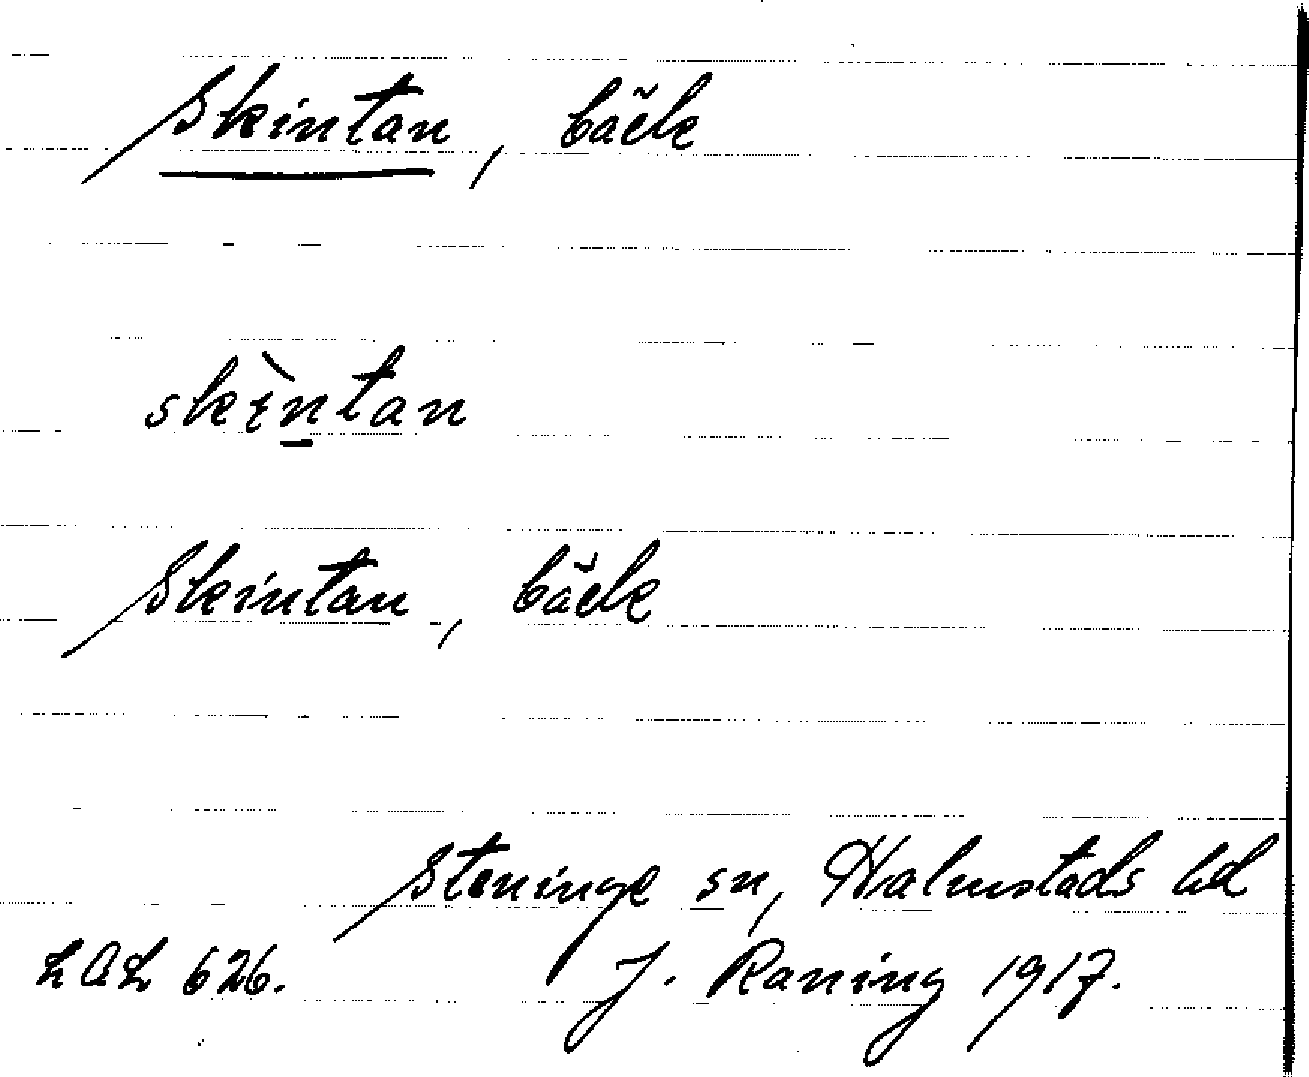 Skintan, bäck
skìntan
Skintan, bäck
Steninge sn, Halmstads hd
LAL 626. J. Raning 1917.